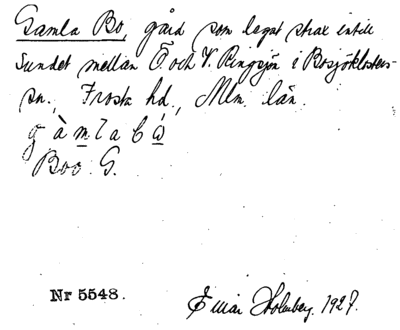 Gamla Bo, gård som legat strax intill
sundet mellan Ö. och V. Ringsjön i Bosjöklosters-
sn., Frosta hd., Mlm. län.
g à m l a b ó
Boo G.
Nr 5548.
Einar Holmberg. 1927.